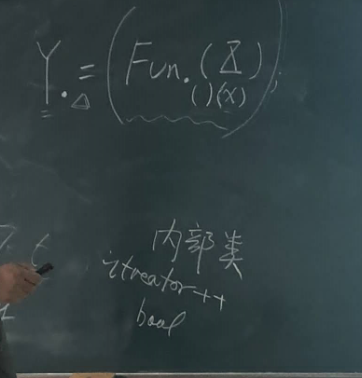 Y.△=(Fun.(X)
()(x));
内部类
itreator++
bool